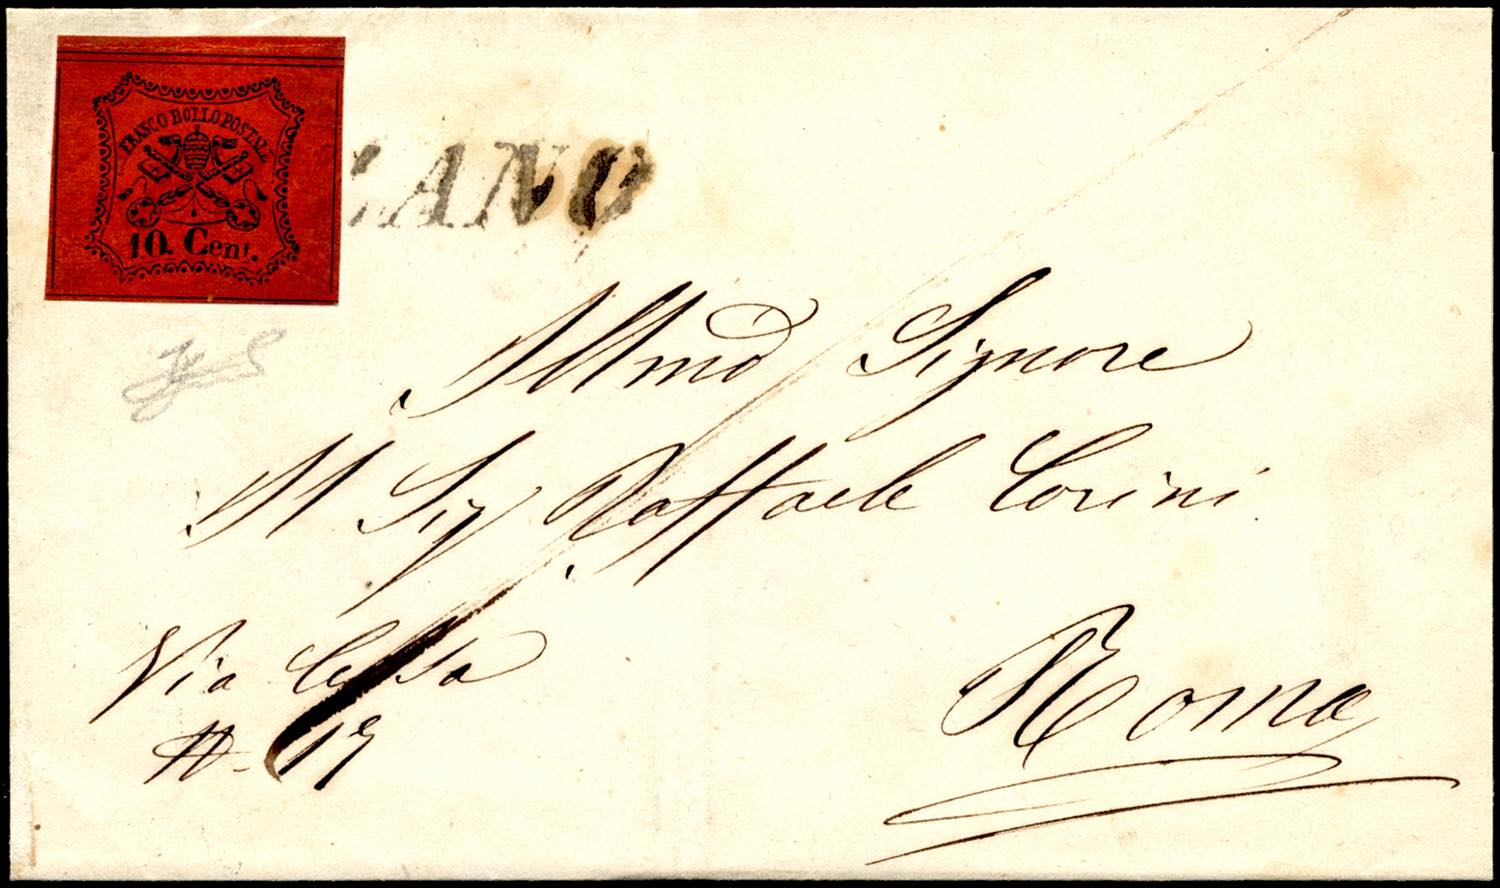 FRANCO BOLLO POSTALE
10. Cent.
ZANO
Illmo Signore
Il Sig Raffaele Corini
Via
N. 19
Roma